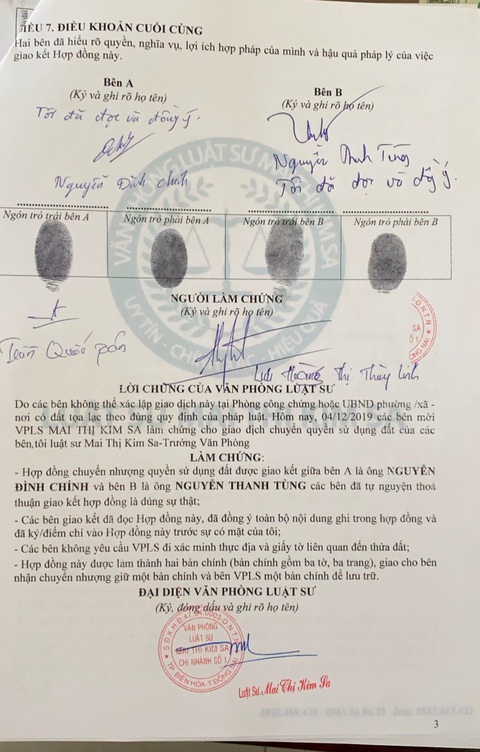 ĐIỀU 7. ĐIỀU KHOẢN CUỐI CÙNG
Hai bên đã hiểu rõ quyền, nghĩa vụ, lợi ích hợp pháp của mình và hậu quả pháp lý của việc
giao kết Hợp đồng này.
Bên A
(Ký và ghi rõ họ tên)
Tôi đã đọc và đồng ý.
Nguyễn Đình Chính
Bên B
(Ký và ghi rõ họ tên)
Nguyễn Thanh Tùng
Tôi đã đọc và đồng ý.
Ngón trỏ trái bên A
Ngón trỏ phải bên A
Ngón trỏ trái bên B
Ngón trỏ phải bên B
NGƯỜI LÀM CHỨNG
(Ký và ghi rõ họ tên)
Trần Quốc
Lưu Hoàng Thị Thùy Linh
LỜI CHỨNG CỦA VĂN PHÒNG LUẬT SƯ
Do các bên không thể xác lập giao dịch này tại Phòng công chứng hoặc UBND phường /xã -
nơi có đất tọa lạc theo đúng quy định của pháp luật. Hôm nay, 04/12/2019 các bên mời
VPLS MAI THỊ KIM SA làm chứng cho giao dịch chuyển quyền sử dụng đất của các
bên,tôi luật sư Mai Thị Kim Sa-Trưởng Văn Phòng
LÀM CHỨNG:
- Hợp đồng chuyển nhượng quyền sử dụng đất được giao kết giữa bên A là ông NGUYỄN
ĐÌNH CHÍNH và bên B là ông NGUYỄN THANH TÙNG các bên đã tự nguyện thoả
thuận giao kết hợp đồng là đúng sự thật;
- Các bên giao kết đã đọc Hợp đồng này, đã đồng ý toàn bộ nội dung ghi trong hợp đồng và
đã ký/điểm chỉ vào Hợp đồng này trước sự có mặt của tôi;
- Các bên không yêu cầu VPLS đi xác minh thực địa và giấy tờ liên quan đến thửa đất;
- Hợp đồng này được làm thành hai bản chính (bản chính gồm ba tờ, ba trang), giao cho bên
nhận chuyển nhượng giữ một bản chính và bên VPLS một bản chính để lưu trữ.
ĐẠI DIỆN VĂN PHÒNG LUẬT SƯ
(Ký, đóng dấu và ghi rõ họ tên)
VĂN PHÒNG
LUẬT SƯ
MAI THỊ KIM SA
CHI NHÁNH SỐ 1
TP. BIÊN HÒA-T.ĐỒNG NAI
Luật Sư. Mai Thị Kim Sa
3